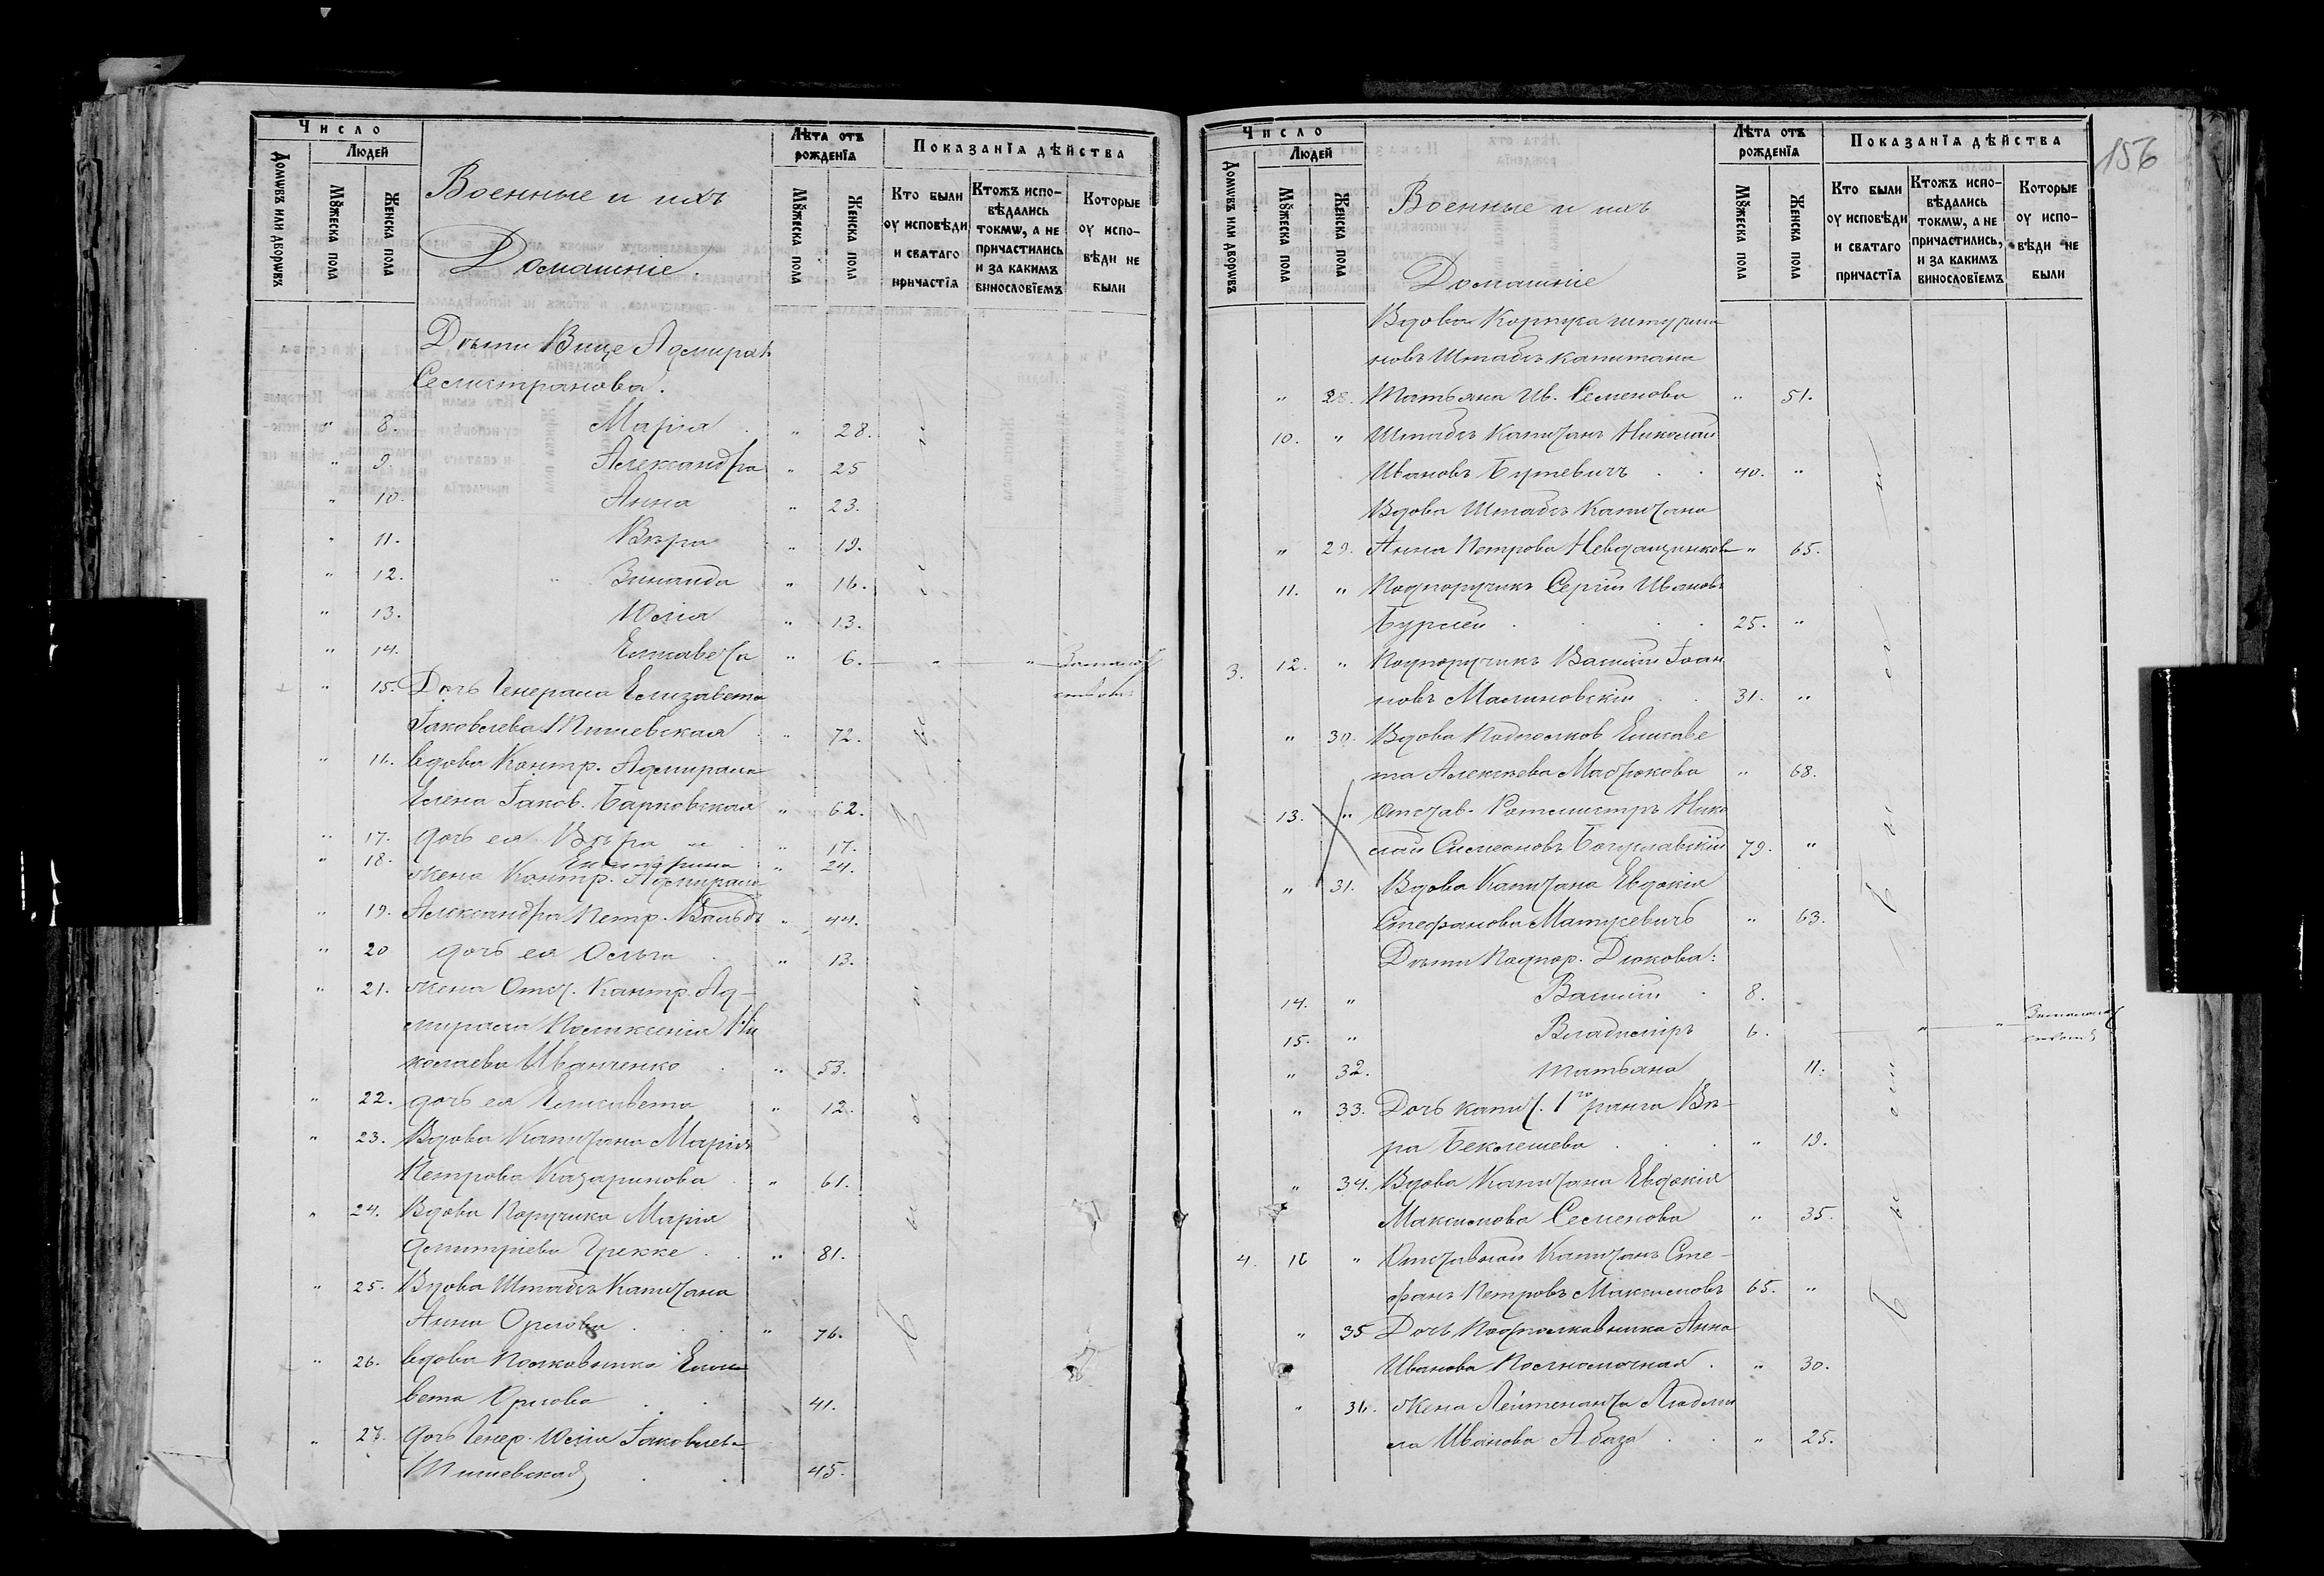 Число
Людей
Домωвъ или дворωвъ
Мꙋжеска пола
Женска пола
Военные и ихъ
Домашніе.
Лѣта отъ
рожденїя
Мꙋжеска пола
Женска пола
Показанїя дѣйства
Кто были
оу исповѣди
и святаго
причастїя
Ктожъ испо-
вѣдались
токмω, а не
причастились
и за какимъ
винословїемъ
Которые
оу испо-
вѣди не
были
Дѣти Вице Адмирала
Селистранова.
" 8. Марія " 28.
" 9. Александра " 25
" 10. Анна " 23.
" 11. Вѣра " 19.
" 12. Зинаида " 16.
" 13. Юлія " 13.
" 14. Елисавета " 6. " " За малол
" 15. Дочь Генерала Елизавета
ствомъ
Іаковлева " 72.
" 16. вдова Контр. Адмирала
Елена Іаков. Барковская " 62.
" 17. дочь ея Вѣра " 17.
" 18. Екатерина " 24.
жена Контр. Адмирала
" 19. Александра Петр. " 44.
" 20 дочь ея Ольга " 13.
" 21. жена Отст. Контр. Ад-
мирала Поликсенія Ни
колаева Иванченко " 53.
" 22. дочь ея Елисавета " 12.
" 23. Вдова Капитана Марія
Петрова Казаринова " 61.
" 24. Вдова Поручика Марія
Дмитріева Грекке " 81.
" 25. Вдова Штабсъ Капитана
Анна Орлова " 76.
" 26. вдова Полковника Елиса
вета Орлова 41.
" 27. дочь Генер. Юлія Іаковлева
45.
156
Число
Людей
Домωвъ или дворωвъ
Мꙋжеска пола
Женска пола
Военные и ихъ
Домашніе
Лѣта отъ
рожденїя
Мꙋжеска пола
Женска пола
Показанїя дѣйства
Кто были
оу исповѣди
и святаго
причастїя
Ктожъ испо-
вѣдались
токмω, а не
причастились,
и за какимъ
винословїемъ
Которые
оу испо-
вѣди не
были
Вдова Корпуса штурма
новъ Штабсъ капитана
" 28. Татьяна Ив. Семенова " 51.
10. " Штабсъ Капитанъ Николай
Ивановъ Бутевичъ 40. "
Вдова Штабсъ Капитана
" 29. Анна Петрова " 65.
11. " Подпоручикъ Сергій Ивановъ
25. "
3. 12. " Подпоручикъ Василій Іоан
новъ Малиновскій 31. "
" 30. Вдова Подполков Елисаве
та Алексѣева " 68.
13. " Отстав. Ротмистръ Нико
лай Симеоновъ Богуславскій 79. "
" 31. Вдова Капитана Евдокія
Стефанова Матусевичъ " 63.
Дѣти Подпор. Дюкова:
14. " Василій 8.
15. " Владиміръ 6. " " За малол
ствомъ
" 32. Татьяна 11.
" 33. Дочь капит. 1го ранга Вѣ-
ра Беклешева " 19.
" 34. Вдова Капитана Евдокія
Максимова Семенова " 35.
4. 16 " Отставной Капитанъ Сте-
фанъ Петровъ Максимовъ 65. "
" 35 Дочь Подполковника Анна
Иванова " 30.
" 36. жена Лейтенанта Людми
ла Иванова Абаза " 25.